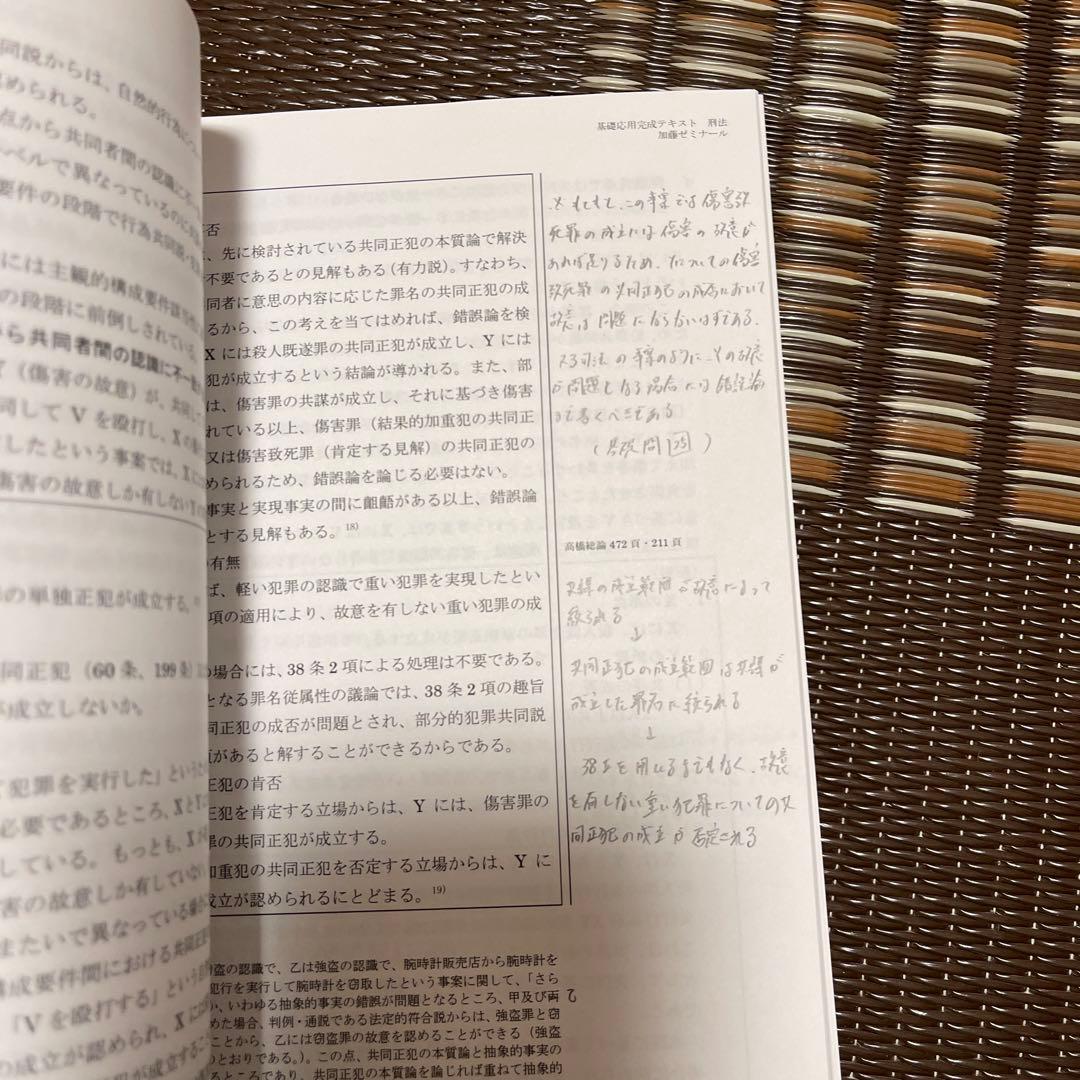 同説からは、自然的行為に
められる。
点から共同者間の認識に不一
ベルで異なっているのに
要件の段階で行為共同説・
には主観的構成要件該当性
の段階に前倒しされている。
ら共同者間の認識に不一致
Y（傷害の故意）が、共同し
同して V を殴打し、X の
したという事案では、X に
傷害の故意しか有しない Y
の単独正犯が成立する。
同正犯（60 条、199 条）
が成立しないか。
て犯罪を実行した」という
必要であるところ、X と Y に
している。もっとも、X が
害の故意しか有していない
またいで異なっている場合に
構成要件間における共同正
「V を殴打する」という
の成立が認められ、X には
が成立すること
基礎応用完成テキスト　刑法
加藤ゼミナール
否
、先に検討されている共同正犯の本質論で解決
不要であるとの見解もある（有力説）。すなわち、
同者に意思の内容に応じた罪名の共同正犯の成
るから、この考えを当てはめれば、錯誤論を検
X には殺人既遂罪の共同正犯が成立し、Y には
犯が成立するという結論が導かれる。また、部
は、傷害罪の共謀が成立し、それに基づき傷害
れている以上、傷害罪（結果的加重犯の共同正
又は傷害致死罪（肯定する見解）の共同正犯の
められるため、錯誤論を論じる必要はない。
事実と実現事実の間に齟齬がある以上、錯誤論
とする見解もある。18)
有無
ば、軽い犯罪の認識で重い犯罪を実現したとい
項の適用により、故意を有しない重い犯罪の成
の場合には、38 条 2 項による処理は不要である。
となる罪名従属性の議論では、38 条 2 項の趣旨
同正犯の成否が問題とされ、部分的犯罪共同説
があると解することができるからである。
正犯の肯否
正犯を肯定する立場からは、Y には、傷害罪の
罪の共同正犯が成立する。
加重犯の共同正犯を否定する立場からは、Y に
成立が認められるにとどまる。19)
もそも、この事案では傷害致
死罪の成立には傷害の故意が
あれば足りるため、
致死罪の共同正犯の成否において
故意は問題にならないはずである。
の事案のように、その故意
が問題となる場合には錯誤論
まで書くべきである
高橋総論 472 頁・211 頁
共謀の成立範囲が故意によって
絞られる
↓
共同正犯の成立範囲は共謀が
成立した罪名に絞られる
↓
38Ⅱを用いるまでもなく、故意
を有しない重い犯罪についての共
同正犯の成立が否定される
窃盗の認識で、乙は強盗の認識で、腕時計販売店から腕時計を
犯行を実行して腕時計を窃取したという事案に関して、「さら
、いわゆる抽象的事実の錯誤が問題となるところ、甲及び両
めた場合、判例・通説である法定的符合説からは、強盗罪と窃
ことから、乙には窃盗罪の故意を認めることができる（強盗
のとおりである。）。この点、共同正犯の本質論と抽象的事実の
るところであり、共同正犯の本質論を論じれば重ねて抽象的
乙